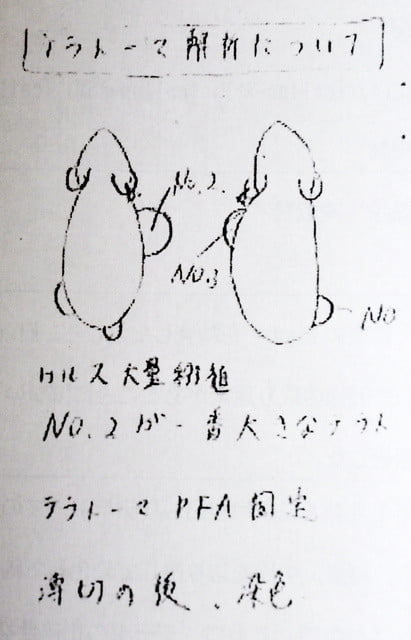 テラトーマ解析について
No.2.
NO.3
NO
大量移植
NO.2が一番大きなテラト
テラトーマ PFA固定
薄切の後、染色